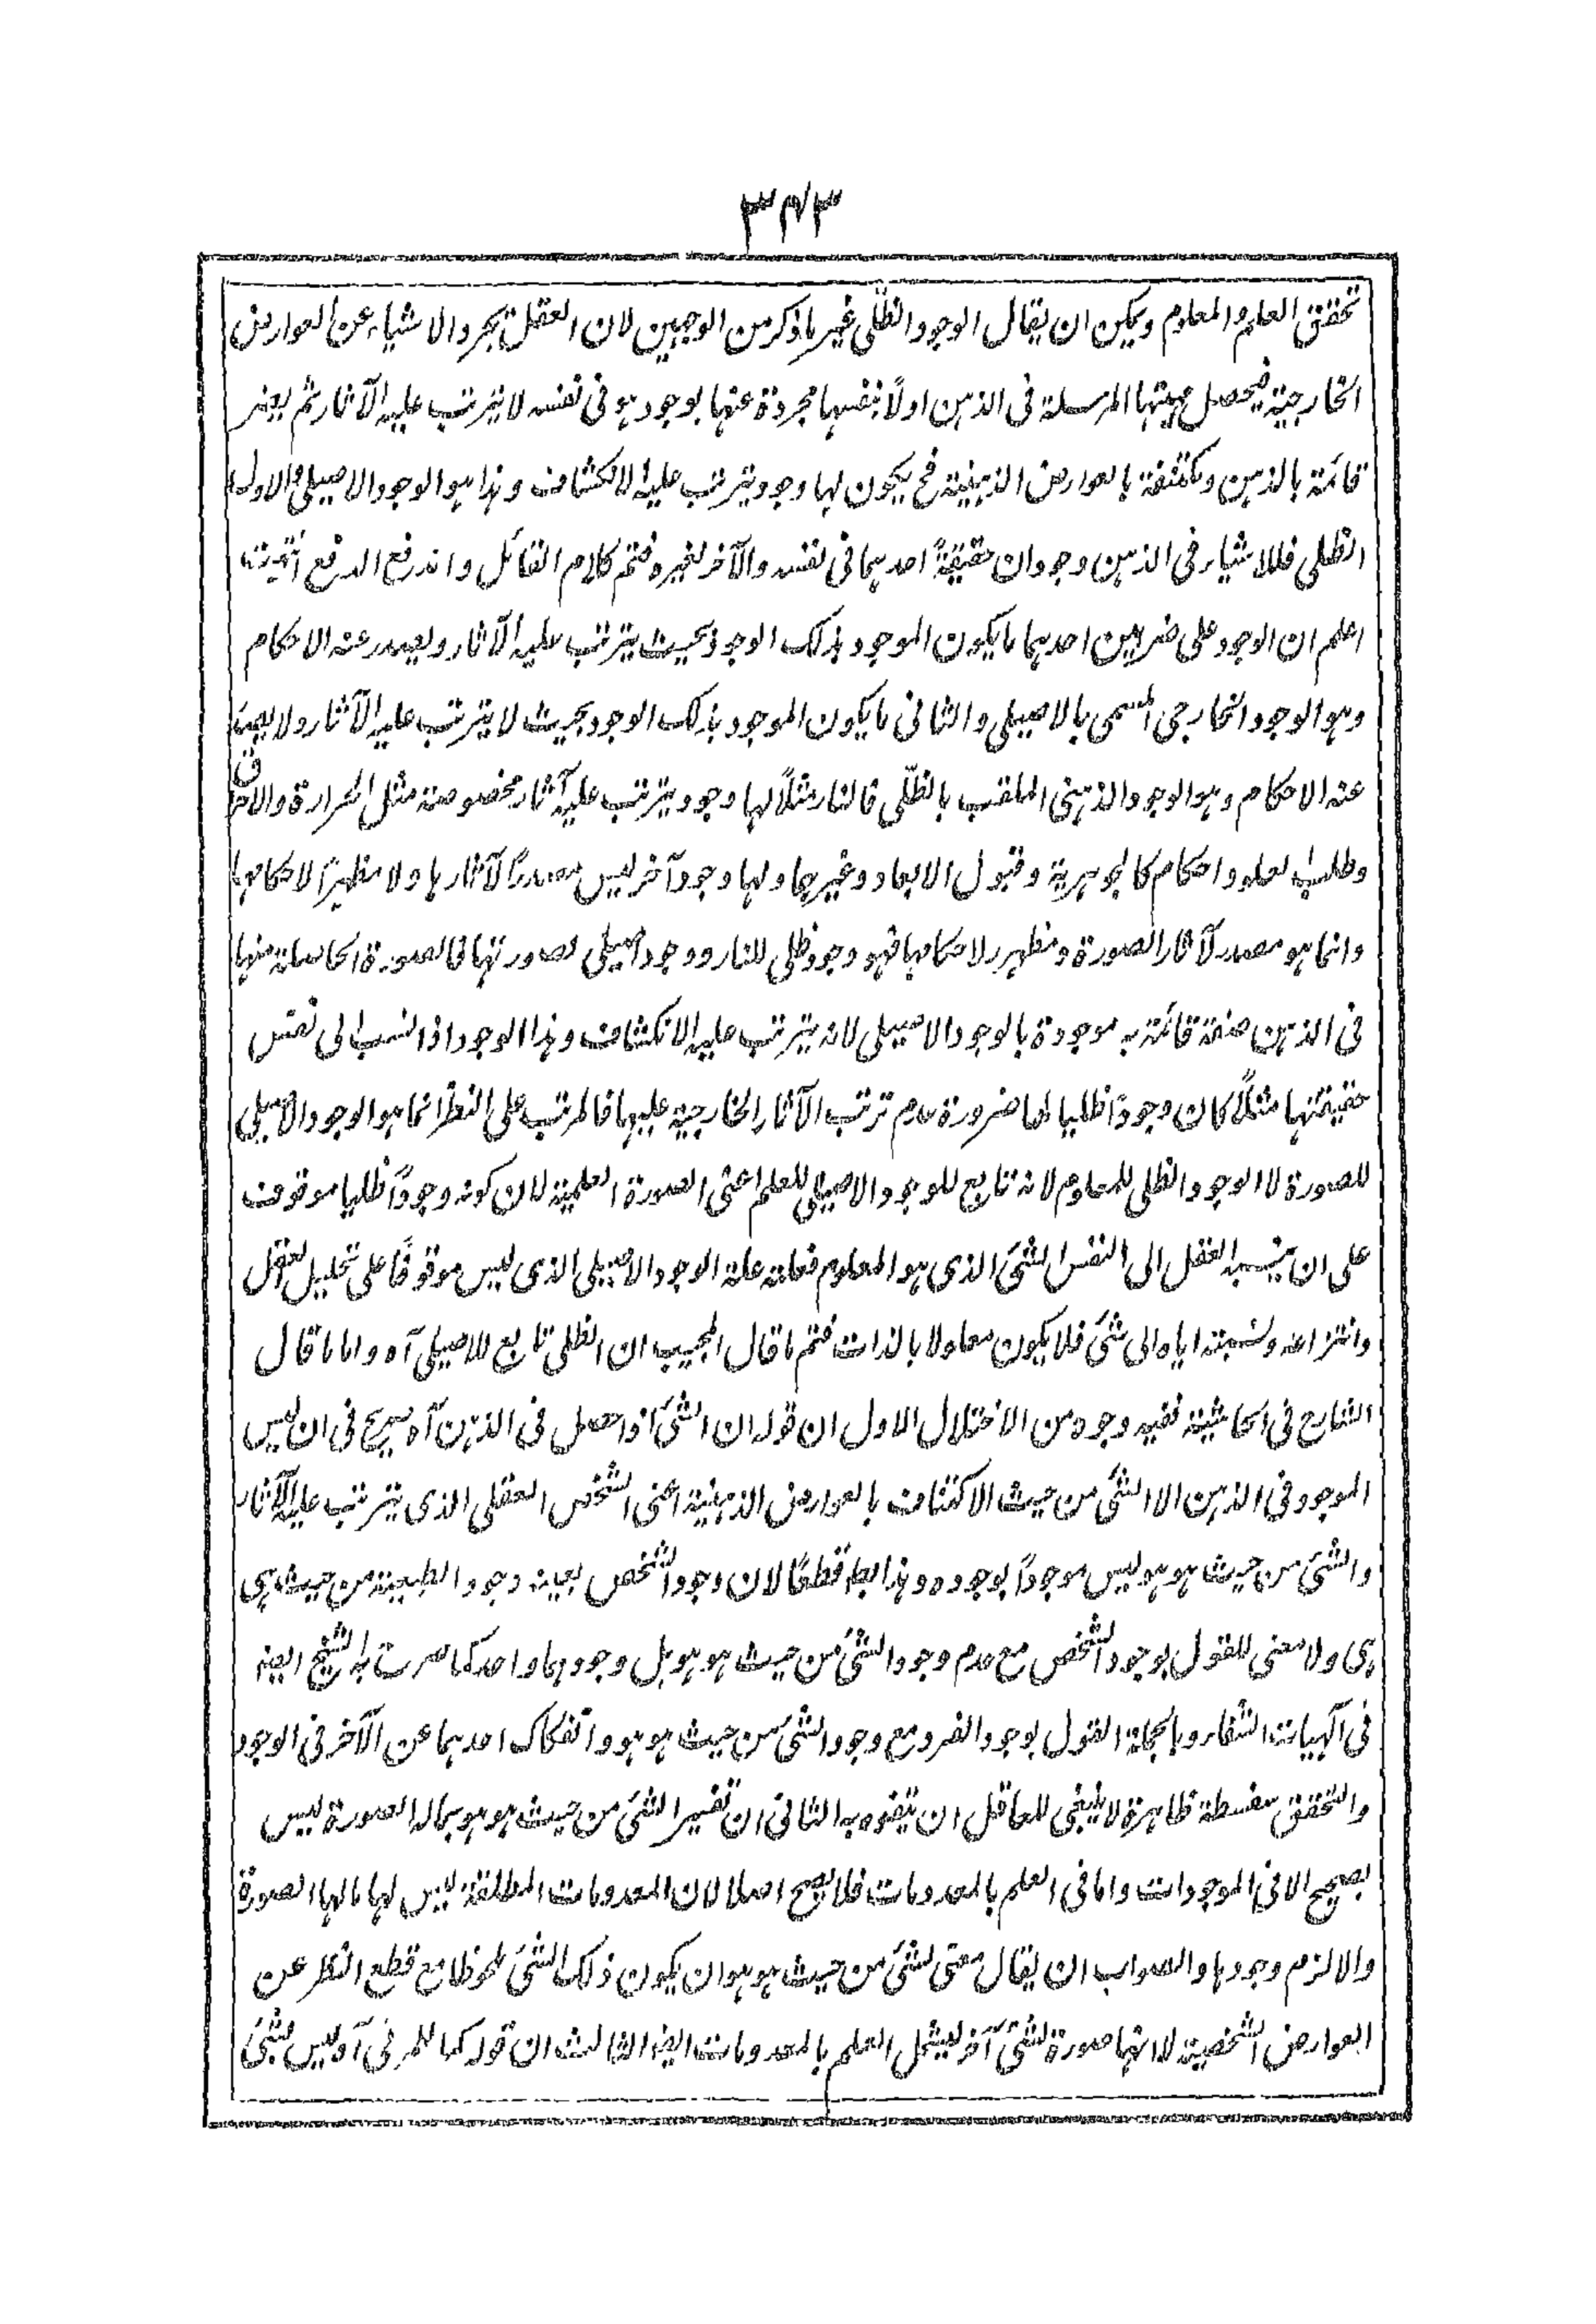 ٣٤٣
تحقق العلم والمعلوم ويمكن ان يقال الوجود الظلّى غير ما ذكر من الوجهين لان العقل يجرد الاشياء عن العوارض
الخارجية فيحصل مهيتها المرسلة فى الذهن اولاً بنفسها مجردة عنها بوجود هو فى نفسه لا يترتب عليه الآثار ثم يعتبر
قائمة بالذهن ومكتنفة بالعوارض الذهنية فح يكون لها وجود يترتب عليه الانكشاف وهذا هو الوجود الاصيلى والاول
الظلى فللاشياء فى الذهن وجودان حقيقةً احدهما فى نفسه والآخر لغيره فتم كلام القائل واندفع الدفع انتهت
اعلم ان الوجود على ضربين احدهما ما يكون الموجود بذلك الوجود بحيث يترتب عليه الآثار ويصدر عنه الاحكام
وهو الوجود الخارجى المسمى بالاصيلى والثانى ما يكون الموجود بذلك الوجود بحيث لا يترتب عليه الآثار ولا يصدر
عنه الاحكام وهو الوجود الذهنى الملقب بالظلّى فالنار مثلاً لها وجود يترتب عليه آثار مخصوصة مثل الحرارة والاحراق
وطلب العلو واحكام كالجوهرية وقبول الابعاد وغيرها ولها وجود آخر ليس مصدراً لآثارها ولا مظهراً لاحكامها
وانما هو مصدر لآثار الصورة ومظهر لاحكامها فهو وجود ظلى للنار ووجود اصيلى لصورتها فالصورة الحاصلة منها
فى الذهن صفة قائمة به موجودة بالوجود الاصيلى لانه يترتب عليه الانكشاف وهذا الوجود اذا نسب الى نفس
حقيقتها مثلاً كان وجوداً ظليا لها ضرورة عدم ترتب الآثار الخارجية عليها فالمرتب على النظر انما هو الوجود الاصيلى
للصورة لا الوجود الظلى للمعلوم لانه تابع للوجود الاصيلى للعلم اعنى الصورة العلمية لان كونه وجوداً ظليا موقوف
على ان ينسبه العقل الى النفس الشئ الذى هو المعلوم فعلته علة الوجود الاصيلى الذى ليس موقوفًا على تحليل العقل
وانتزاعه ونسبته اياه الى شئ فلا يكون معلولا بالذات فتم ما قال المجيب ان الظلى تابع للاصيلى آه واما ما قال
الشارح فى الحاشية ففيه وجوه من الاختلال الاول ان قوله ان الشئ اذا حصل فى الذهن آه صريح فى ان ليس
الموجود فى الذهن الا الشئ من حيث الاكتناف بالعوارض الذهنية اعنى الشخص العقلى الذى يترتب عليه الآثار
والشئ من حيث هو هو ليس موجوداً بوجوده وهذا بط قطعًا لان وجود الشخص بعينه وجود الطبيعة من حيث هى
هى ولا معنى للقول بوجود الشخص مع عدم وجود الشئ من حيث هو هو بل وجودهما واحد كما صرحت به الشيخ ايضا
فى آلهيات الشفاء وبالجملة القول بوجود الفرد مع وجود الشئ من حيث هو هو وانفكاك احدهما عن الآخر فى الوجود
والتحقق سفسطة ظاهرة لا ينبغى للعاقل ان يتفوه به الثانى ان تفسير الشئ من حيث هو هو بما له الصورة ليس
بصحيح الا فى الموجودات واما فى العلم بالمعدومات فلا يصح اصلا لان المعدومات المطلقة ليس لها ما لها الصورة
والا لزم وجودها والصواب ان يقال معنى لشئ من حيث هو هو ان يكون ذلك الشئ ملحوظا مع قطع النظر عن
العوارض الشخصية لا انها صورة لشئ آخر ليشمل العلم بالمعدومات ايضا الثالث ان قوله كما للمر فى آه ليس بشئ